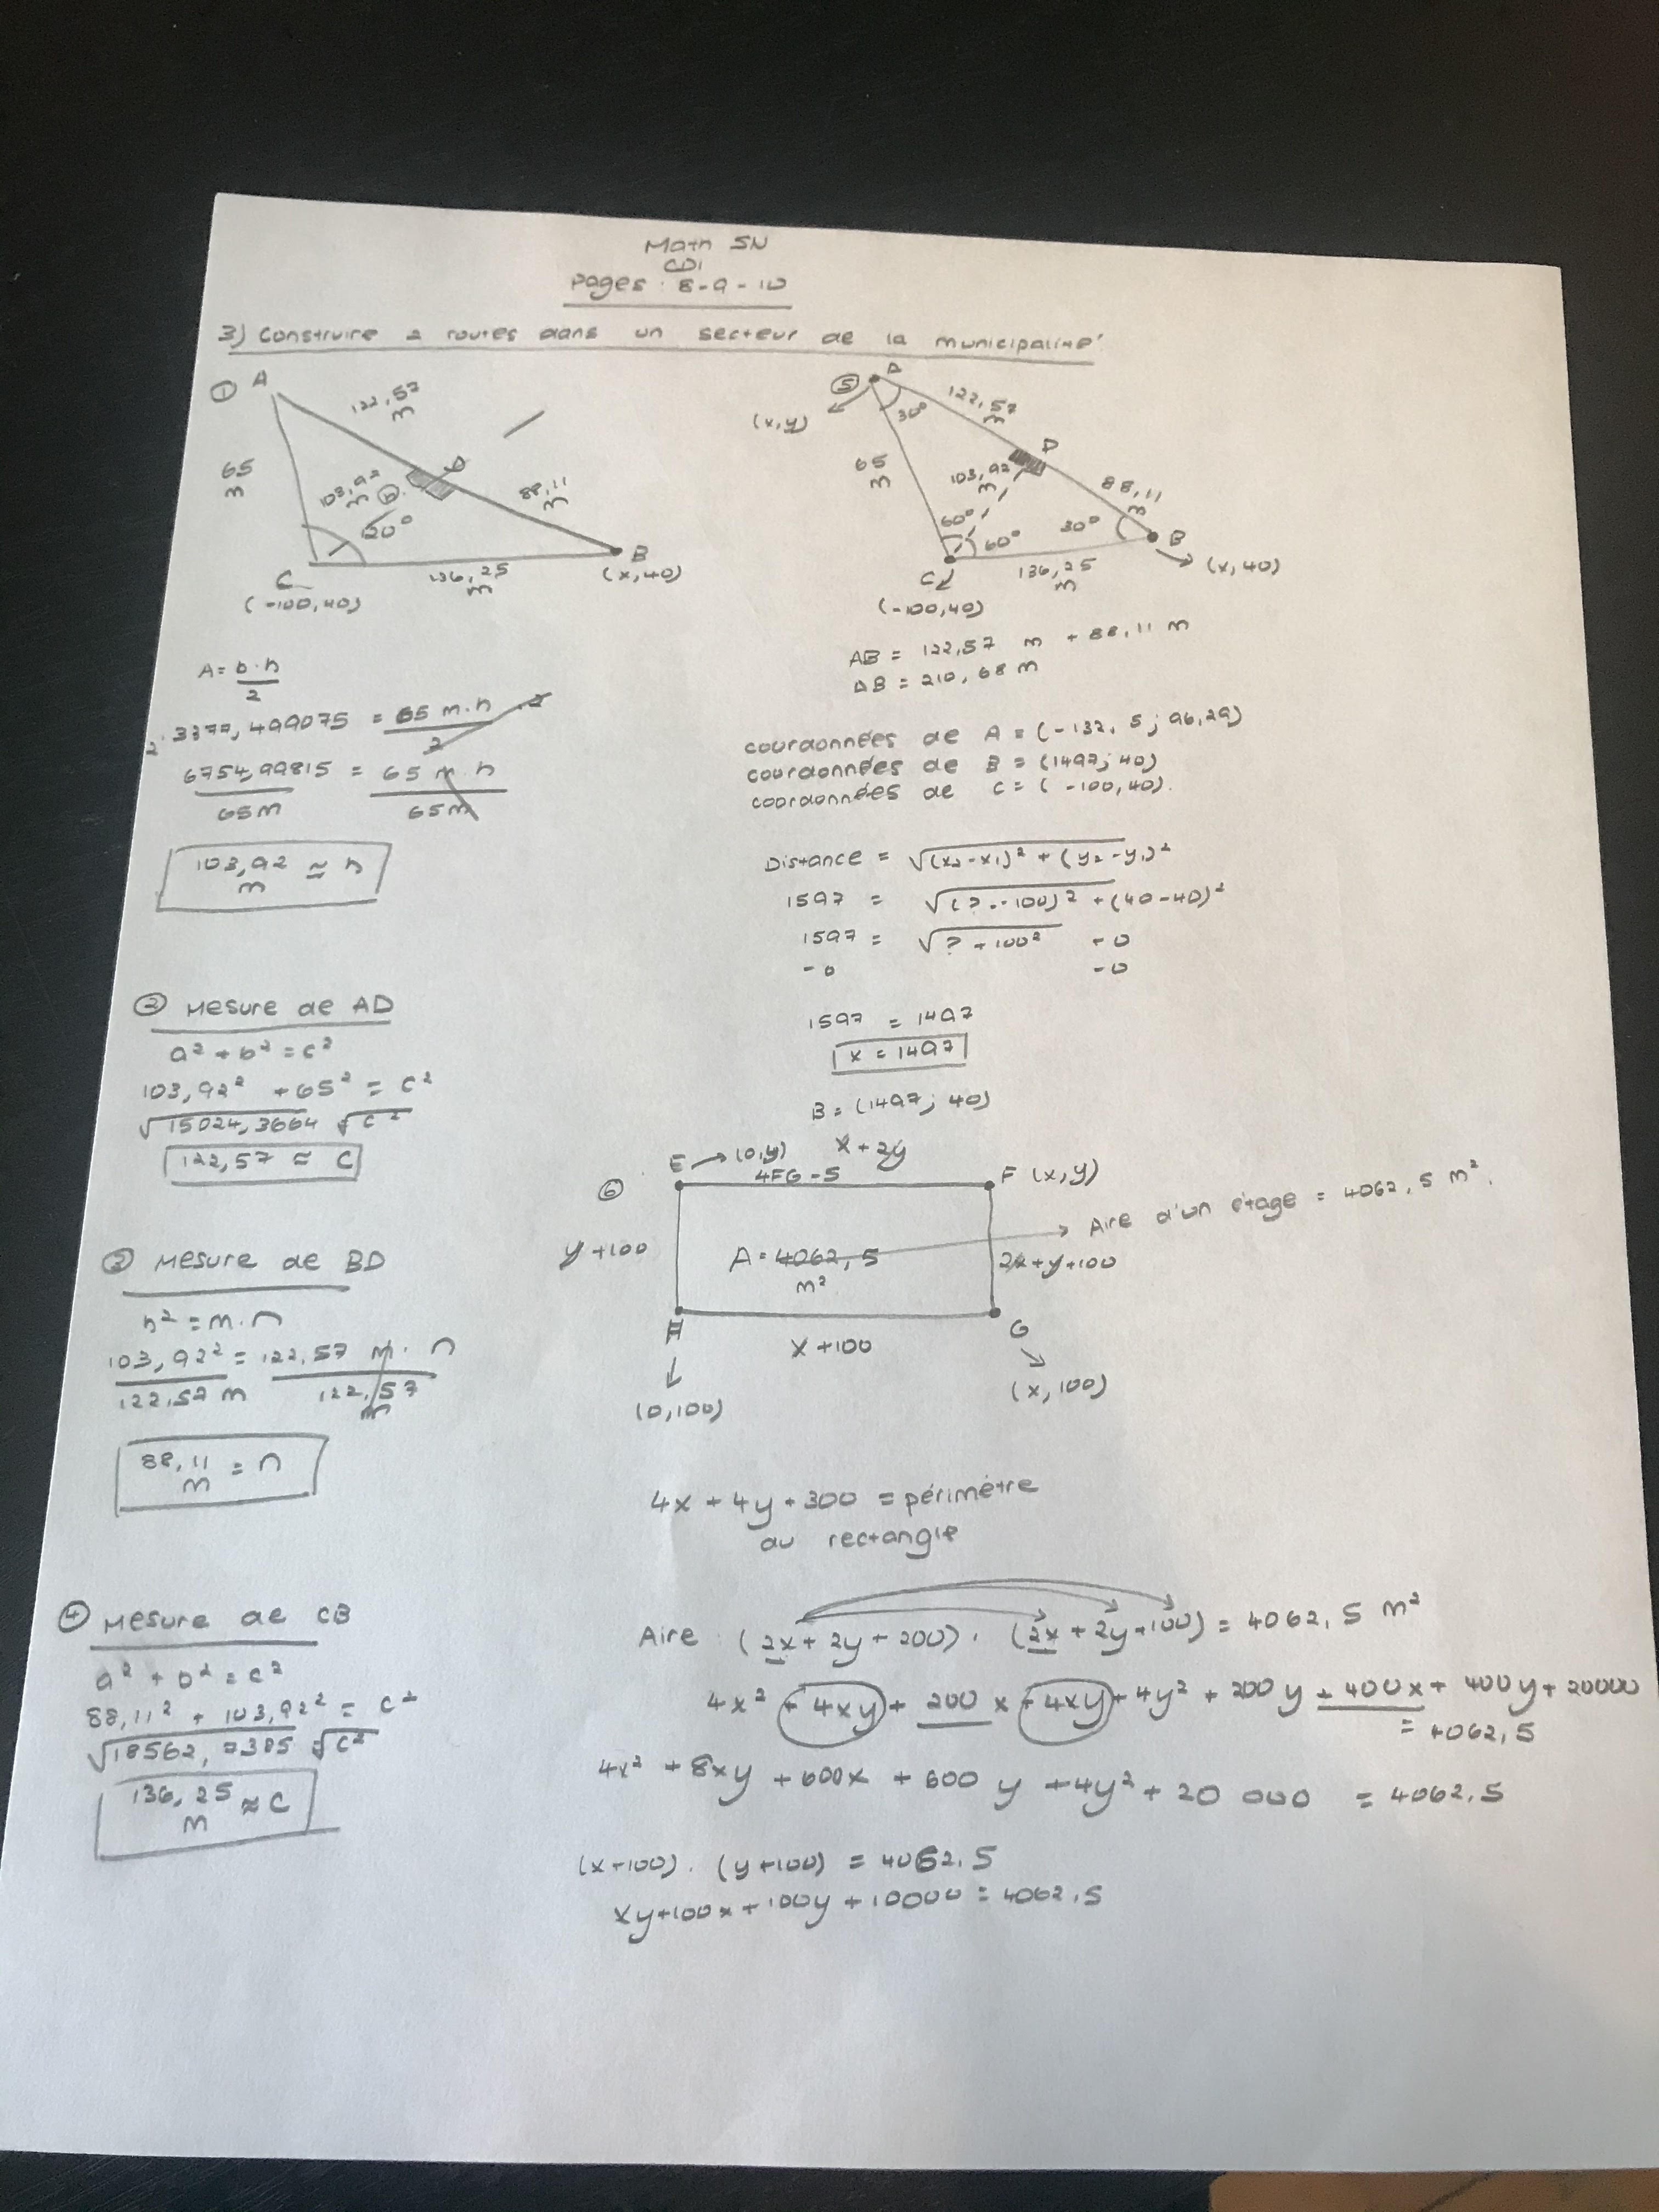 Math SN
CD1
Pages : 8-9-10
3) Construire 2 routes dans un secteur de la municipalité
① A
122,57
m
65
m
D
103,92
m
88,11
m
120°
C
(-100,40)
136,25
m
B
(x,40)
A = b·h
2
2· 3377,499075 = 65 m·h ·2
2
6754,99815 = 65 m·h
65m 65m
103,92 ≈ h
m
② Mesure de AD
a² + b² = c²
103,92² + 65² = c²
√15024,3664 √c²
122,57 ≈ c
③ Mesure de BD
h² = m·n
103,92² = 122,57 m· n
122,57 m 122,57
m
88,11 = n
m
④ Mesure de CB
a² + b² = c²
88,11² + 103,92² = c²
√18562,7385 √c²
136,25 ≈ c
m
⑤ A
(x,y)
30°
122,57
m
65
m
D
103,92
m
88,11
m
60°
60°
30°
B
(x,40)
C
(-100,40)
136,25
m
AB = 122,57 m + 88,11 m
AB = 210,68 m
coordonnées de A = (-132,5; 96,29)
coordonnées de B = (1497; 40)
coordonnées de C = (-100,40).
Distance = √(x₂-x₁)² + (y₂-y₁)²
1597 = √(?--100)² + (40-40)²
1597 = √?+100² +0
-0 -0
1597 = 1497
x = 1497
B = (1497; 40)
⑥ E → (0,y) x+2y
4FG-5
F (x,y)
y+100
A = 4062,5
m²
→ Aire d'un étage = 4062,5 m².
2x+y+100
H
x+100
G
(0,100)
(x,100)
4x + 4y + 300 = périmètre
du rectangle
Aire : (2x+2y+200) · (2x+2y+100) = 4062,5 m²
4x² + 4xy + 200x + 4xy + 4y² + 200y + 400x + 400y + 20000
= 4062,5
4x² + 8xy + 600x + 600y + 4y² + 20 000 = 4062,5
(x+100) · (y+100) = 4062,5
xy+100x+100y+10000 = 4062,5